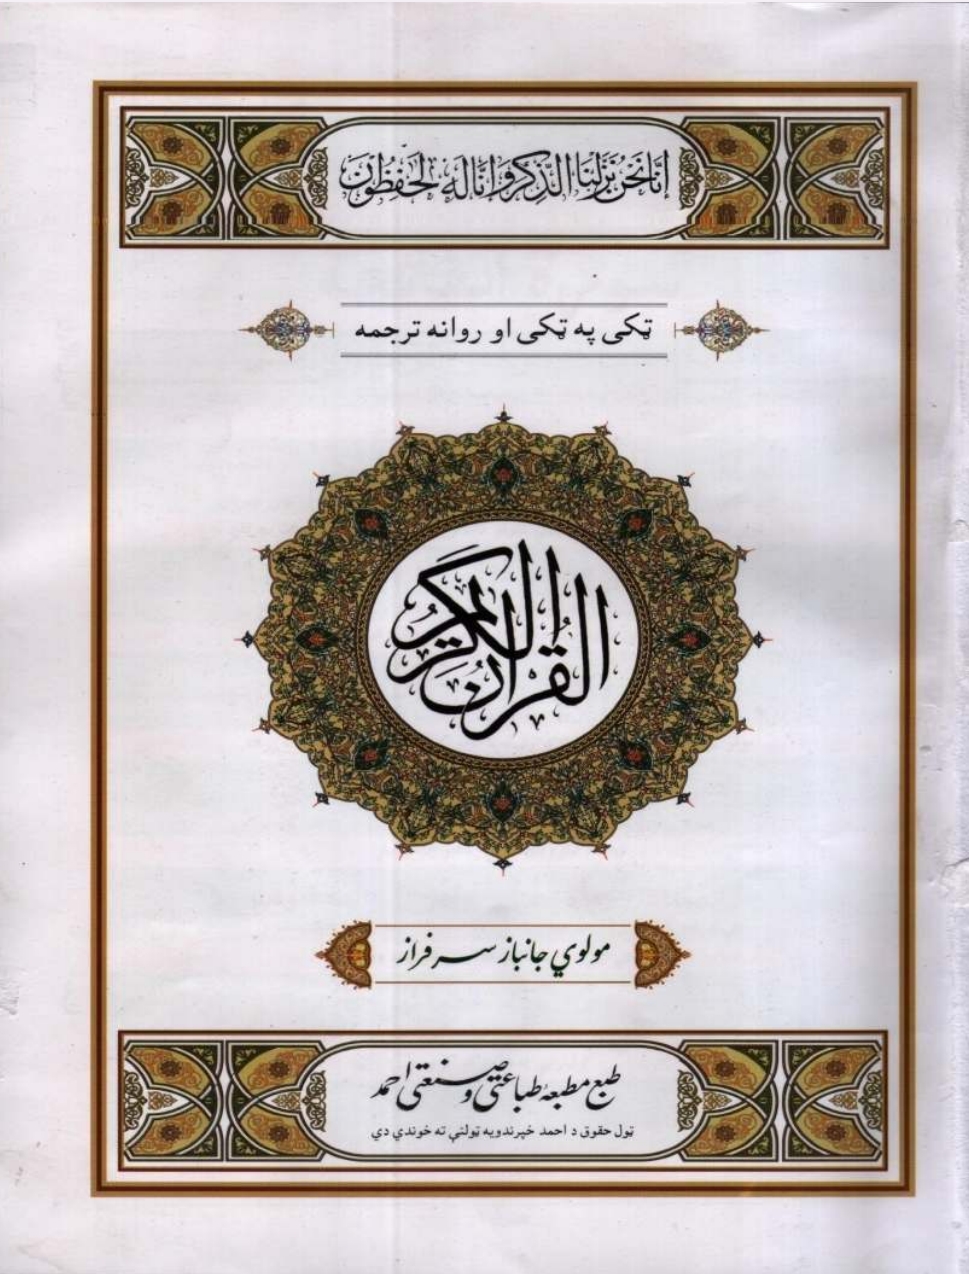 إنا نحن نزلنا الذكر وانا له لحفظون
ټکی په ټکی او روانه ترجمه
القرآن الكريم
مولوي جانباز سرفراز
طبع مطبعهٔ طباعتی و صنعتی احمد
ټول حقوق د احمد خپرندويه ټولني ته خوندي دي